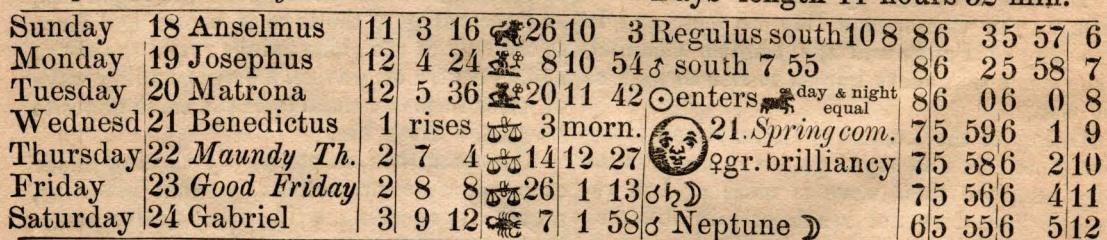 Days' length 11 hours min.
Sunday 18 Anselmus 11 3 16 26 10 3 Regulus south 10 8 8 6 3 5 57 6
Monday 19 Josephus 12 4 24 8 10 54 ♂ south 7 55 8 6 2 5 58 7
Tuesday 20 Matrona 12 5 36 20 11 42 ☉ enters day & night equal 8 6 0 6 0 8
Wednesd 21 Benedictus 1 rises 3 morn. 21. Spring com. 7 5 59 6 1 9
Thursday 22 Maundy Th. 2 7 4 14 12 27 ♀ gr. brilliancy 7 5 58 6 2 10
Friday 23 Good Friday 2 8 8 26 1 13 ☌ ♄ ☽ 7 5 56 6 4 11
Saturday 24 Gabriel 3 9 12 7 1 58 ☌ Neptune ☽ 6 5 55 6 5 12